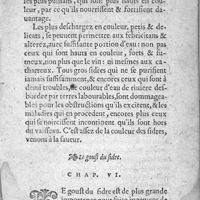 les plus puissans, qui sont plus hauts en cou-
leur, par ce qu'ils nourrissent & fortifient da-
vantage.
Les plus deschargez en couleur, petis & de-
licats, se peuvent permettre aux febricitans &
alterez, avec suffisante portion d'eau: non pas
ceux qui sont hauts en couleur, forts & fu-
meux, non plus que le vin: ni mesmes aux ca-
tharreux. Tous gros sidres qui ne se purifient
jamais suffisamment, & encores ceux qui sont à
demi troubles, de couleur d'eau de riviere des-
border par terres labourables, sont dommagea-
bles pour les obstructions qu'ils excitent, & les
maladies qui en procedent, encores plus ceux
qui se noircissent incontinent qu'ils sont hors
du vaisseau. C'est assez de la couleur des sidres,
venons à la saueur.
Le goust du sidre.
CHAP. VI.
LE goust du sidre est de plus grande